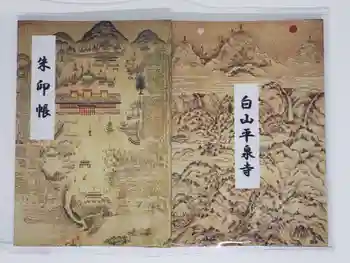 朱印帳
白山平泉寺